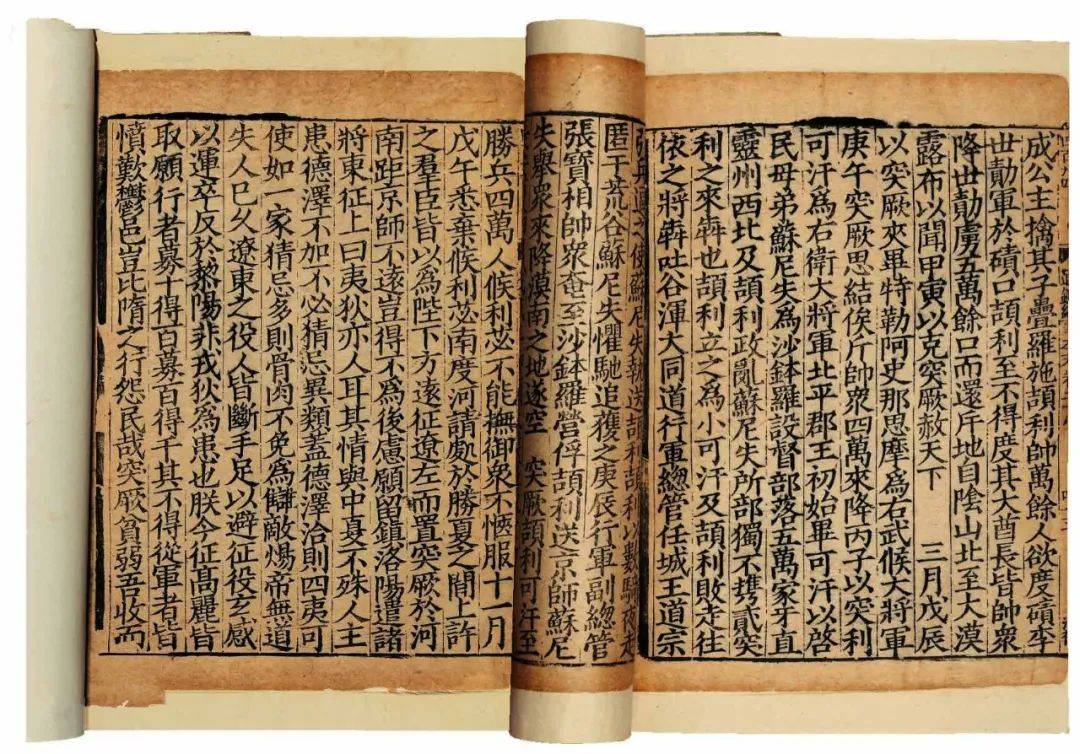 成公主擒其子疊羅施頡利帥萬餘人欲度磧李
世勣軍於磧口頡利至不得度其大酋長皆帥衆
降世勣虜五萬餘口而還斥地自隂山北至大漠
露布以聞甲寅以克突厥赦天下　三月戊辰
以突厥夾畢特勒阿史那思摩爲右武候大將軍
庚午突厥思結俟斤帥衆四萬來降丙子以突利
可汗爲右衛大將軍北平郡王初始畢可汗以啓
民母弟蘇尼失爲沙鉢羅設督部落五萬家牙直
靈州西北及頡利政亂蘇尼失所部獨不擕貳突
利之來犇也頡利立之爲小可汗及頡利敗走往
依之將犇吐谷渾大同道行軍緫管任城王道宗
之使蘇尼失執送頡利頡利以數騎夜走
匿于荒谷蘇尼失懼馳追獲之庚辰行軍副緫管
張寶相帥衆奄至沙鉢羅營俘頡利送京師蘇尼
失舉衆來降漠南之地遂空　突厥頡利可汗至
勝兵四萬人候利苾不能撫御衆不愜服十一月
戊午悉棄候利苾南度河請處於勝夏之間上許
之羣臣皆以爲陛下方遠征遼左而置突厥於河
南距京師不遠豈得不爲後慮願留鎮洛陽遣諸
將東征上曰夷狄亦人耳其情與中夏不殊人主
患德澤不加不必猜忌異類蓋德澤洽則四夷可
使如一家猜忌多則骨肉不免爲讎敵煬帝無道
失人已久遼東之役人皆斷手足以避征役玄感
以運卒反於黎陽非戎狄爲患也朕今征髙麗皆
取願行者募十得百募百得千其不得從軍者皆
憤歎鬱邑豈比隋之行怨民哉突厥貧弱吾收而